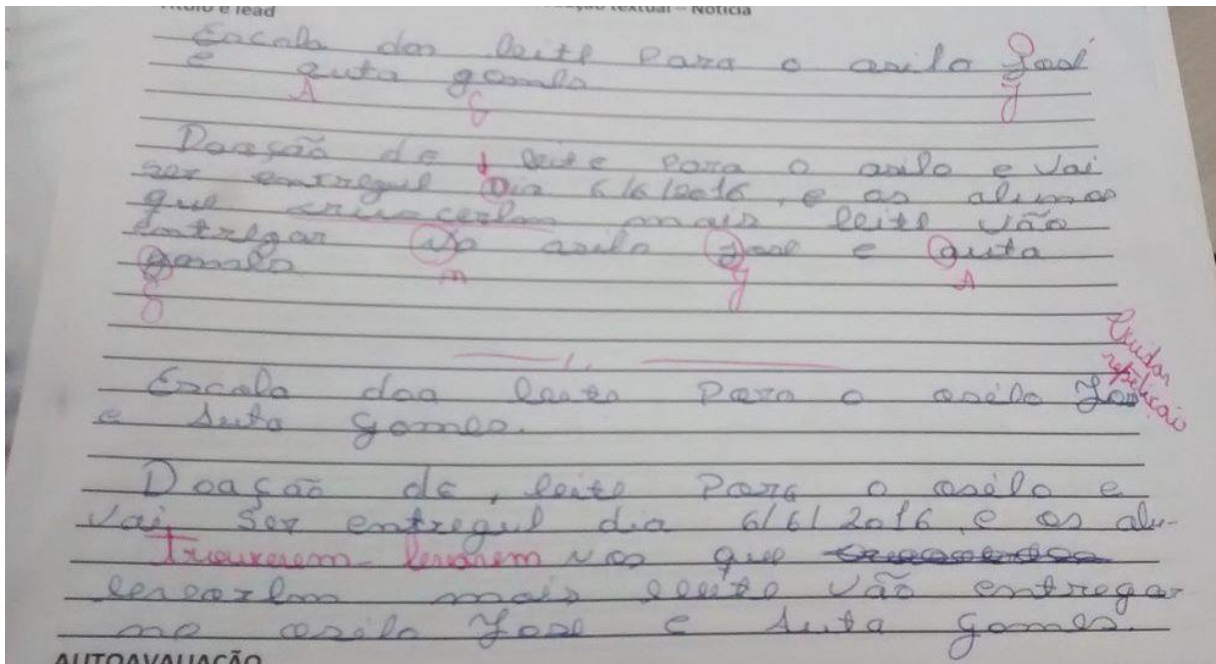 Título e lead
textual – Notícia
Escala doa leite para o asilo José
e auta gomes
A G J
Doação de leite para o asilo e vai
ser entregue Dia 6/6/2016, e os alunos
que mais leite vão
entregar no asilo jose e auta
gomes
G n J A
Cuidar
repetição
Escola doa leite para o asilo José
e Auta Gomes.
Doação de, leite para o asilo e
vai ser entregue dia 6/6/2016, e os alu-
Trouxerem - levarem nos que
mais leite vão entregar
no asilo Jose e Auta Gomes.
AUTOAVALIAÇÃO